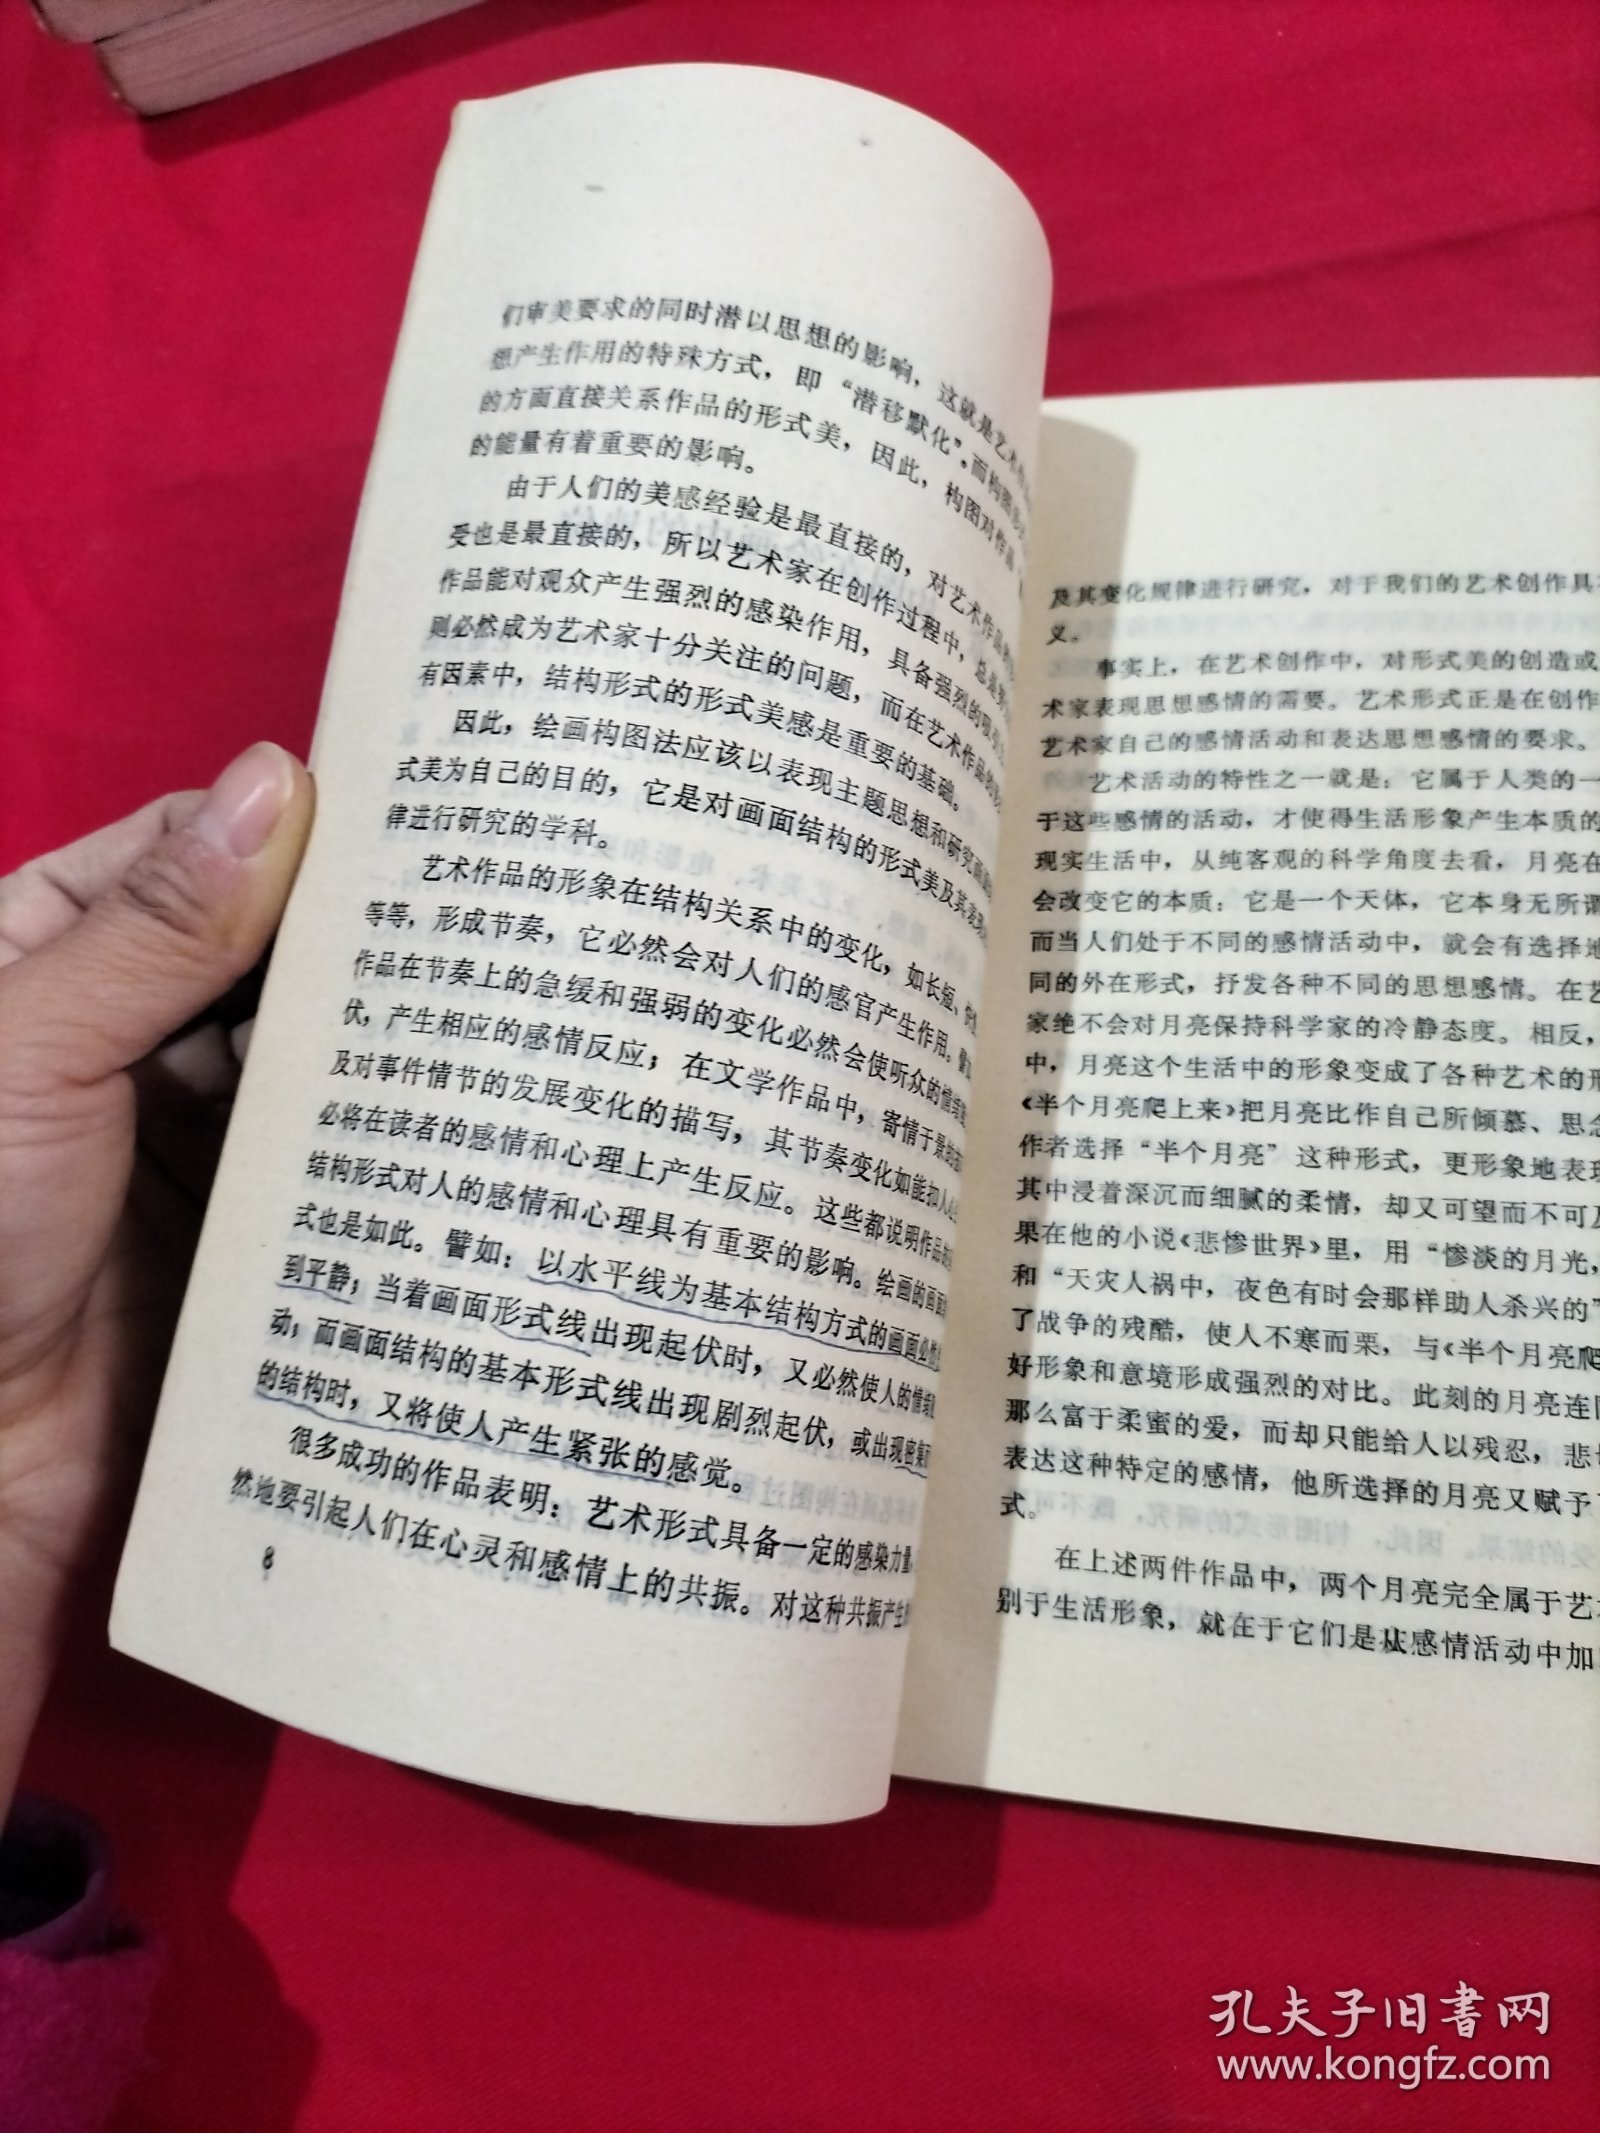 们审美要求的同时潜以思想的影响，这就是艺术
想产生作用的特殊方式，即“潜移默化”。而构图
的方面直接关系作品的形式美，因此，构图对作品
的能量有着重要的影响。
由于人们的美感经验是最直接的，对艺术作品的
受也是最直接的，所以艺术家在创作过程中，总是
作品能对观众产生强烈的感染作用，具备强烈的吸引
则必然成为艺术家十分关注的问题，而在艺术作品的
有因素中，结构形式的形式美感是重要的基础。
因此，绘画构图法应该以表现主题思想和研究画面
式美为自己的目的，它是对画面结构的形式美及其表现
律进行研究的学科。
艺术作品的形象在结构关系中的变化，如长短、
等等，形成节奏，它必然会对人们的感官产生作用。譬
作品在节奏上的急缓和强弱的变化必然会使听众的情绪
伏，产生相应的感情反应；在文学作品中，寄情于景的
及对事件情节的发展变化的描写，其节奏变化如能扣人
必将在读者的感情和心理上产生反应。这些都说明作品的
结构形式对人的感情和心理具有重要的影响。绘画的画面
式也是如此。譬如：以水平线为基本结构方式的画面必然
到平静；当着画面形式线出现起伏时，又必然使人的情绪
动；而画面结构的基本形式线出现剧烈起伏，或出现密集
的结构时，又将使人产生紧张的感觉。
很多成功的作品表明：艺术形式具备一定的感染力量，
然地要引起人们在心灵和感情上的共振。对这种共振产生
8
及其变化规律进行研究，对于我们的艺术创作具
义。
事实上，在艺术创作中，对形式美的创造或
术家表现思想感情的需要。艺术形式正是在创作
艺术家自己的感情活动和表达思想感情的要求。
艺术活动的特性之一就是：它属于人类的一
于这些感情的活动，才使得生活形象产生本质的
现实生活中，从纯客观的科学角度去看，月亮在
会改变它的本质；它是一个天体，它本身无所谓
而当人们处于不同的感情活动中，就会有选择地
同的外在形式，抒发各种不同的思想感情。在艺
家绝不会对月亮保持科学家的冷静态度。相反，
中，月亮这个生活中的形象变成了各种艺术的形
《半个月亮爬上来》把月亮比作自己所倾慕、思念
作者选择“半个月亮”这种形式，更形象地表现
其中浸着深沉而细腻的柔情，却又可望而不可及
果在他的小说《悲惨世界》里，用“惨淡的月光，
和“天灾人祸中，夜色有时会那样助人杀兴的”
了战争的残酷，使人不寒而栗，与《半个月亮爬
好形象和意境形成强烈的对比。此刻的月亮连同
那么富于柔蜜的爱，而却只能给人以残忍，悲
表达这种特定的感情，他所选择的月亮又赋予
式。
在上述两件作品中，两个月亮完全属于艺
别于生活形象，就在于它们是从感情活动中加
孔夫子旧书网
www.kongfz.com